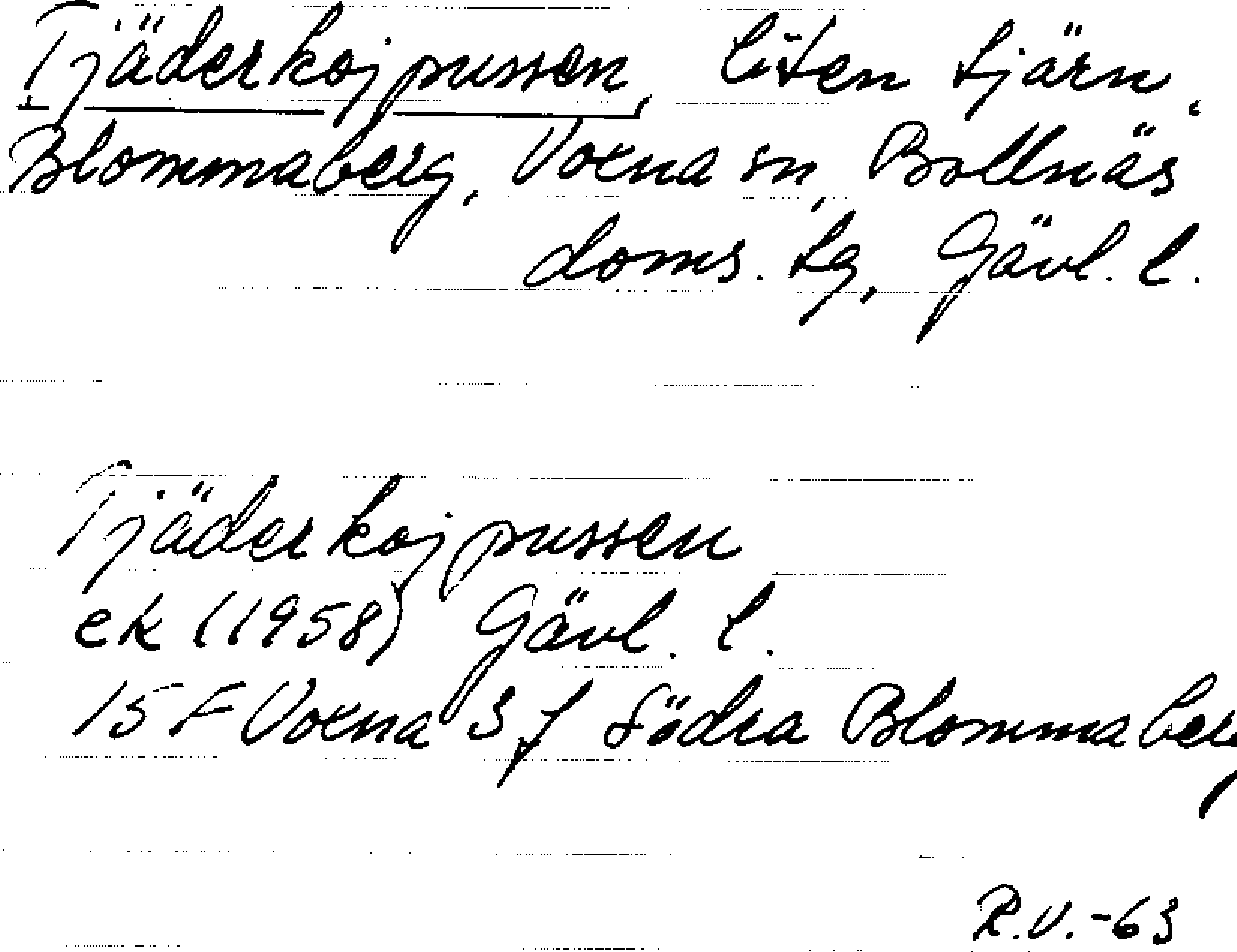 Tjäderkojpussen, liten tjärn,
Blommaberg, Voxna sn, Bollnäs
doms. tg, Gävl. l.
Tjäderkojpussen
ek (1958) Gävl. l.
15 F Voxna 3 f Södra Blommaberg
R.V.-63